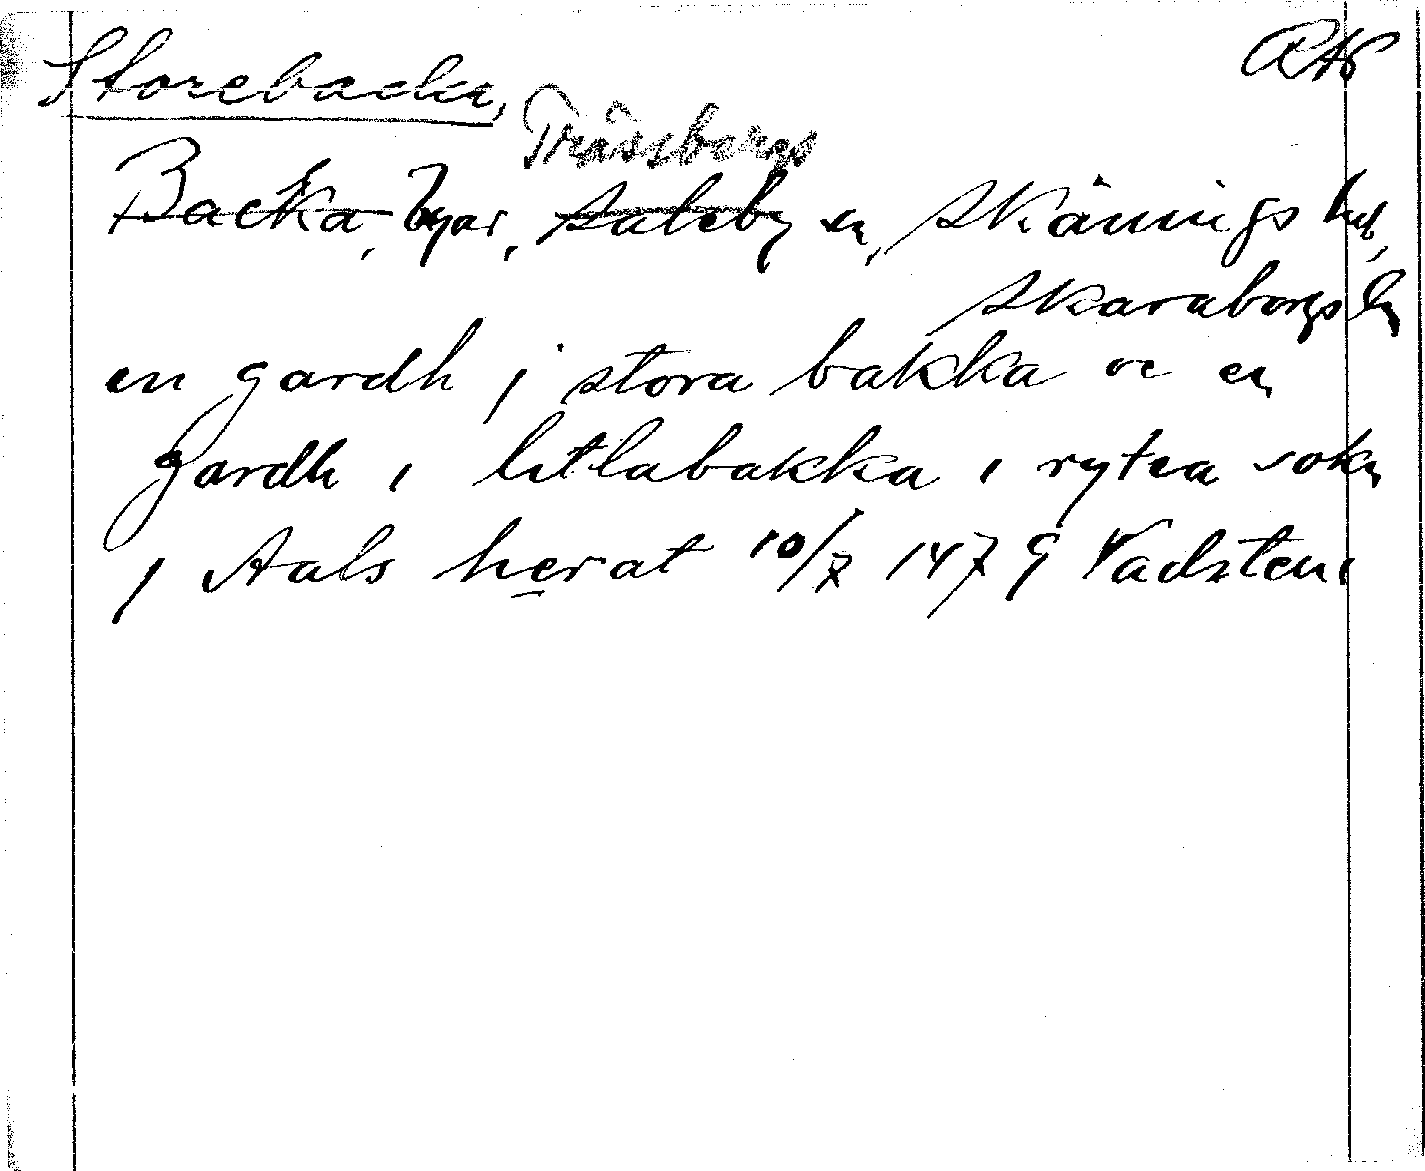 Storebacka,
RAP
Trässbergs
Backa, byar, Saleby sn, Skånings hd,
Skaraborgs ln
en gardh j stora bakka oc en
gardh i litlabakka i rytra sokn
j Aals herat 10/7 1479 Vadstena